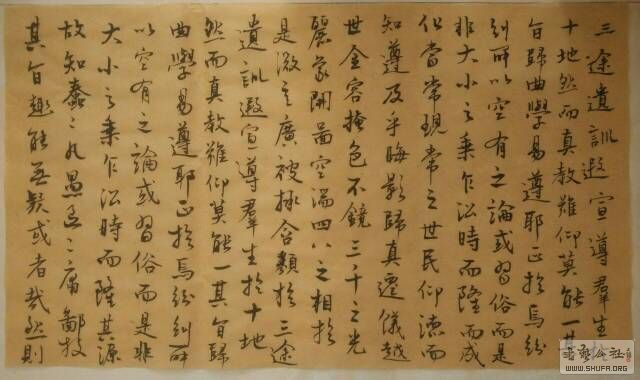 三途遺訓遐宣導羣生於
十地然而真教難仰莫能一其
旨歸曲學易遵耶正於焉紛
糺所以空有之論或習俗而是
非大小之乘乍沿時而隆而成
化當常現常之世民仰德而
知遵及乎晦影歸真遷儀越
世金容掩色不鏡三千之光
麗象開圖空端四八之相於
是微言廣被拯含類於三途
遺訓遐宣導羣生於十地
然而真教難仰莫能一其旨歸
曲學易遵耶正於焉紛糺所
以空有之論或習俗而是非
大小之乘乍沿時而隆其源
故知蠢々凡愚區々庸鄙投
其旨趣能無疑或者哉然則
書藝公社
WWW.SHUFA.ORG